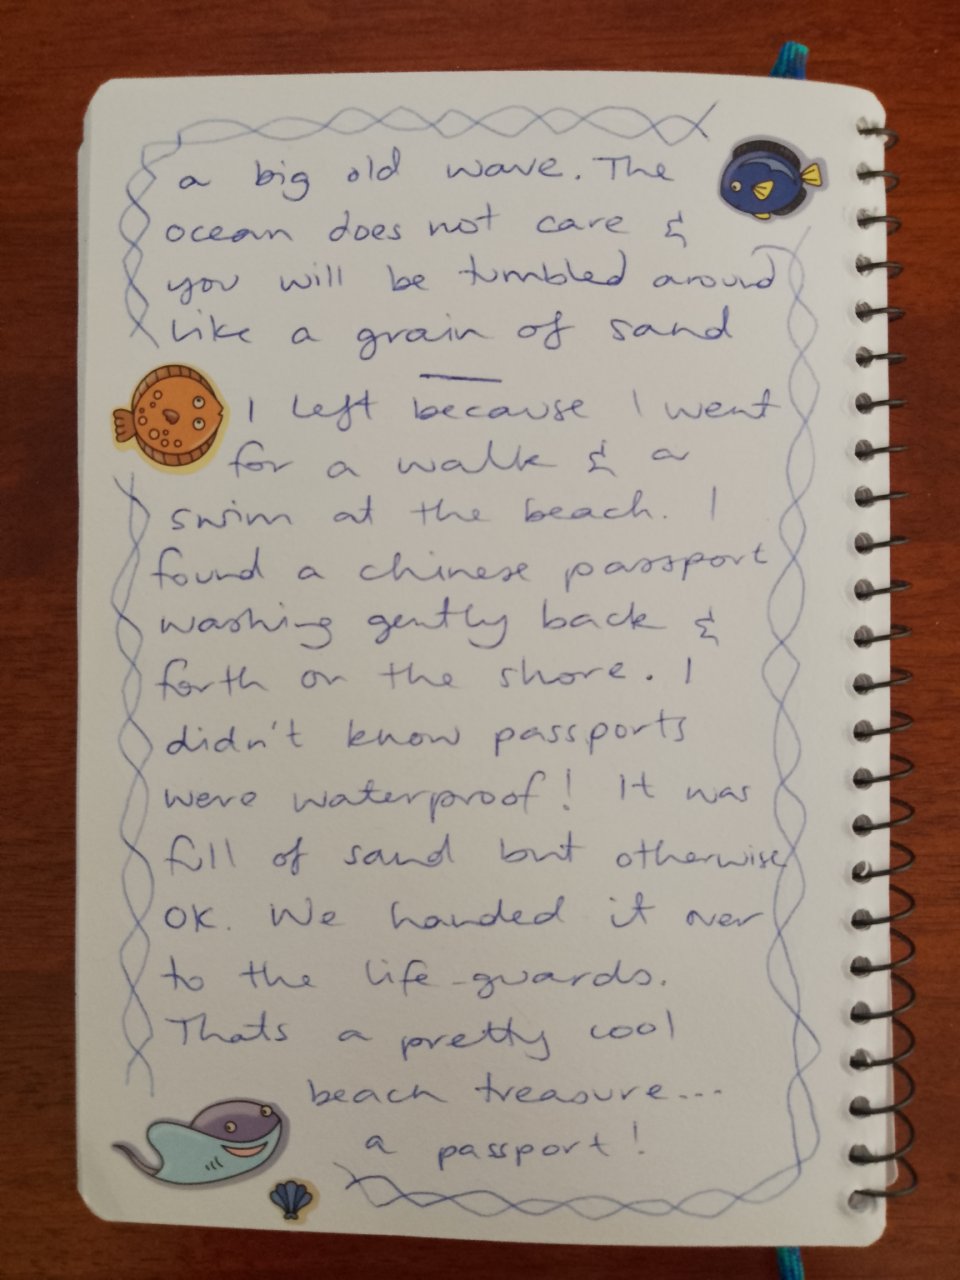 a big old wave. The
ocean does not care &
you will be tumbled around
like a grain of sand
I left because I went
for a walk & a
swim at the beach. I
found a chinese passport
washing gently back &
forth on the shore. I
didn't know passports
were waterproof! It was
full of sand but otherwise
OK. We handed it over
to the life-guards.
Thats a pretty cool
beach treasure...
a passport!